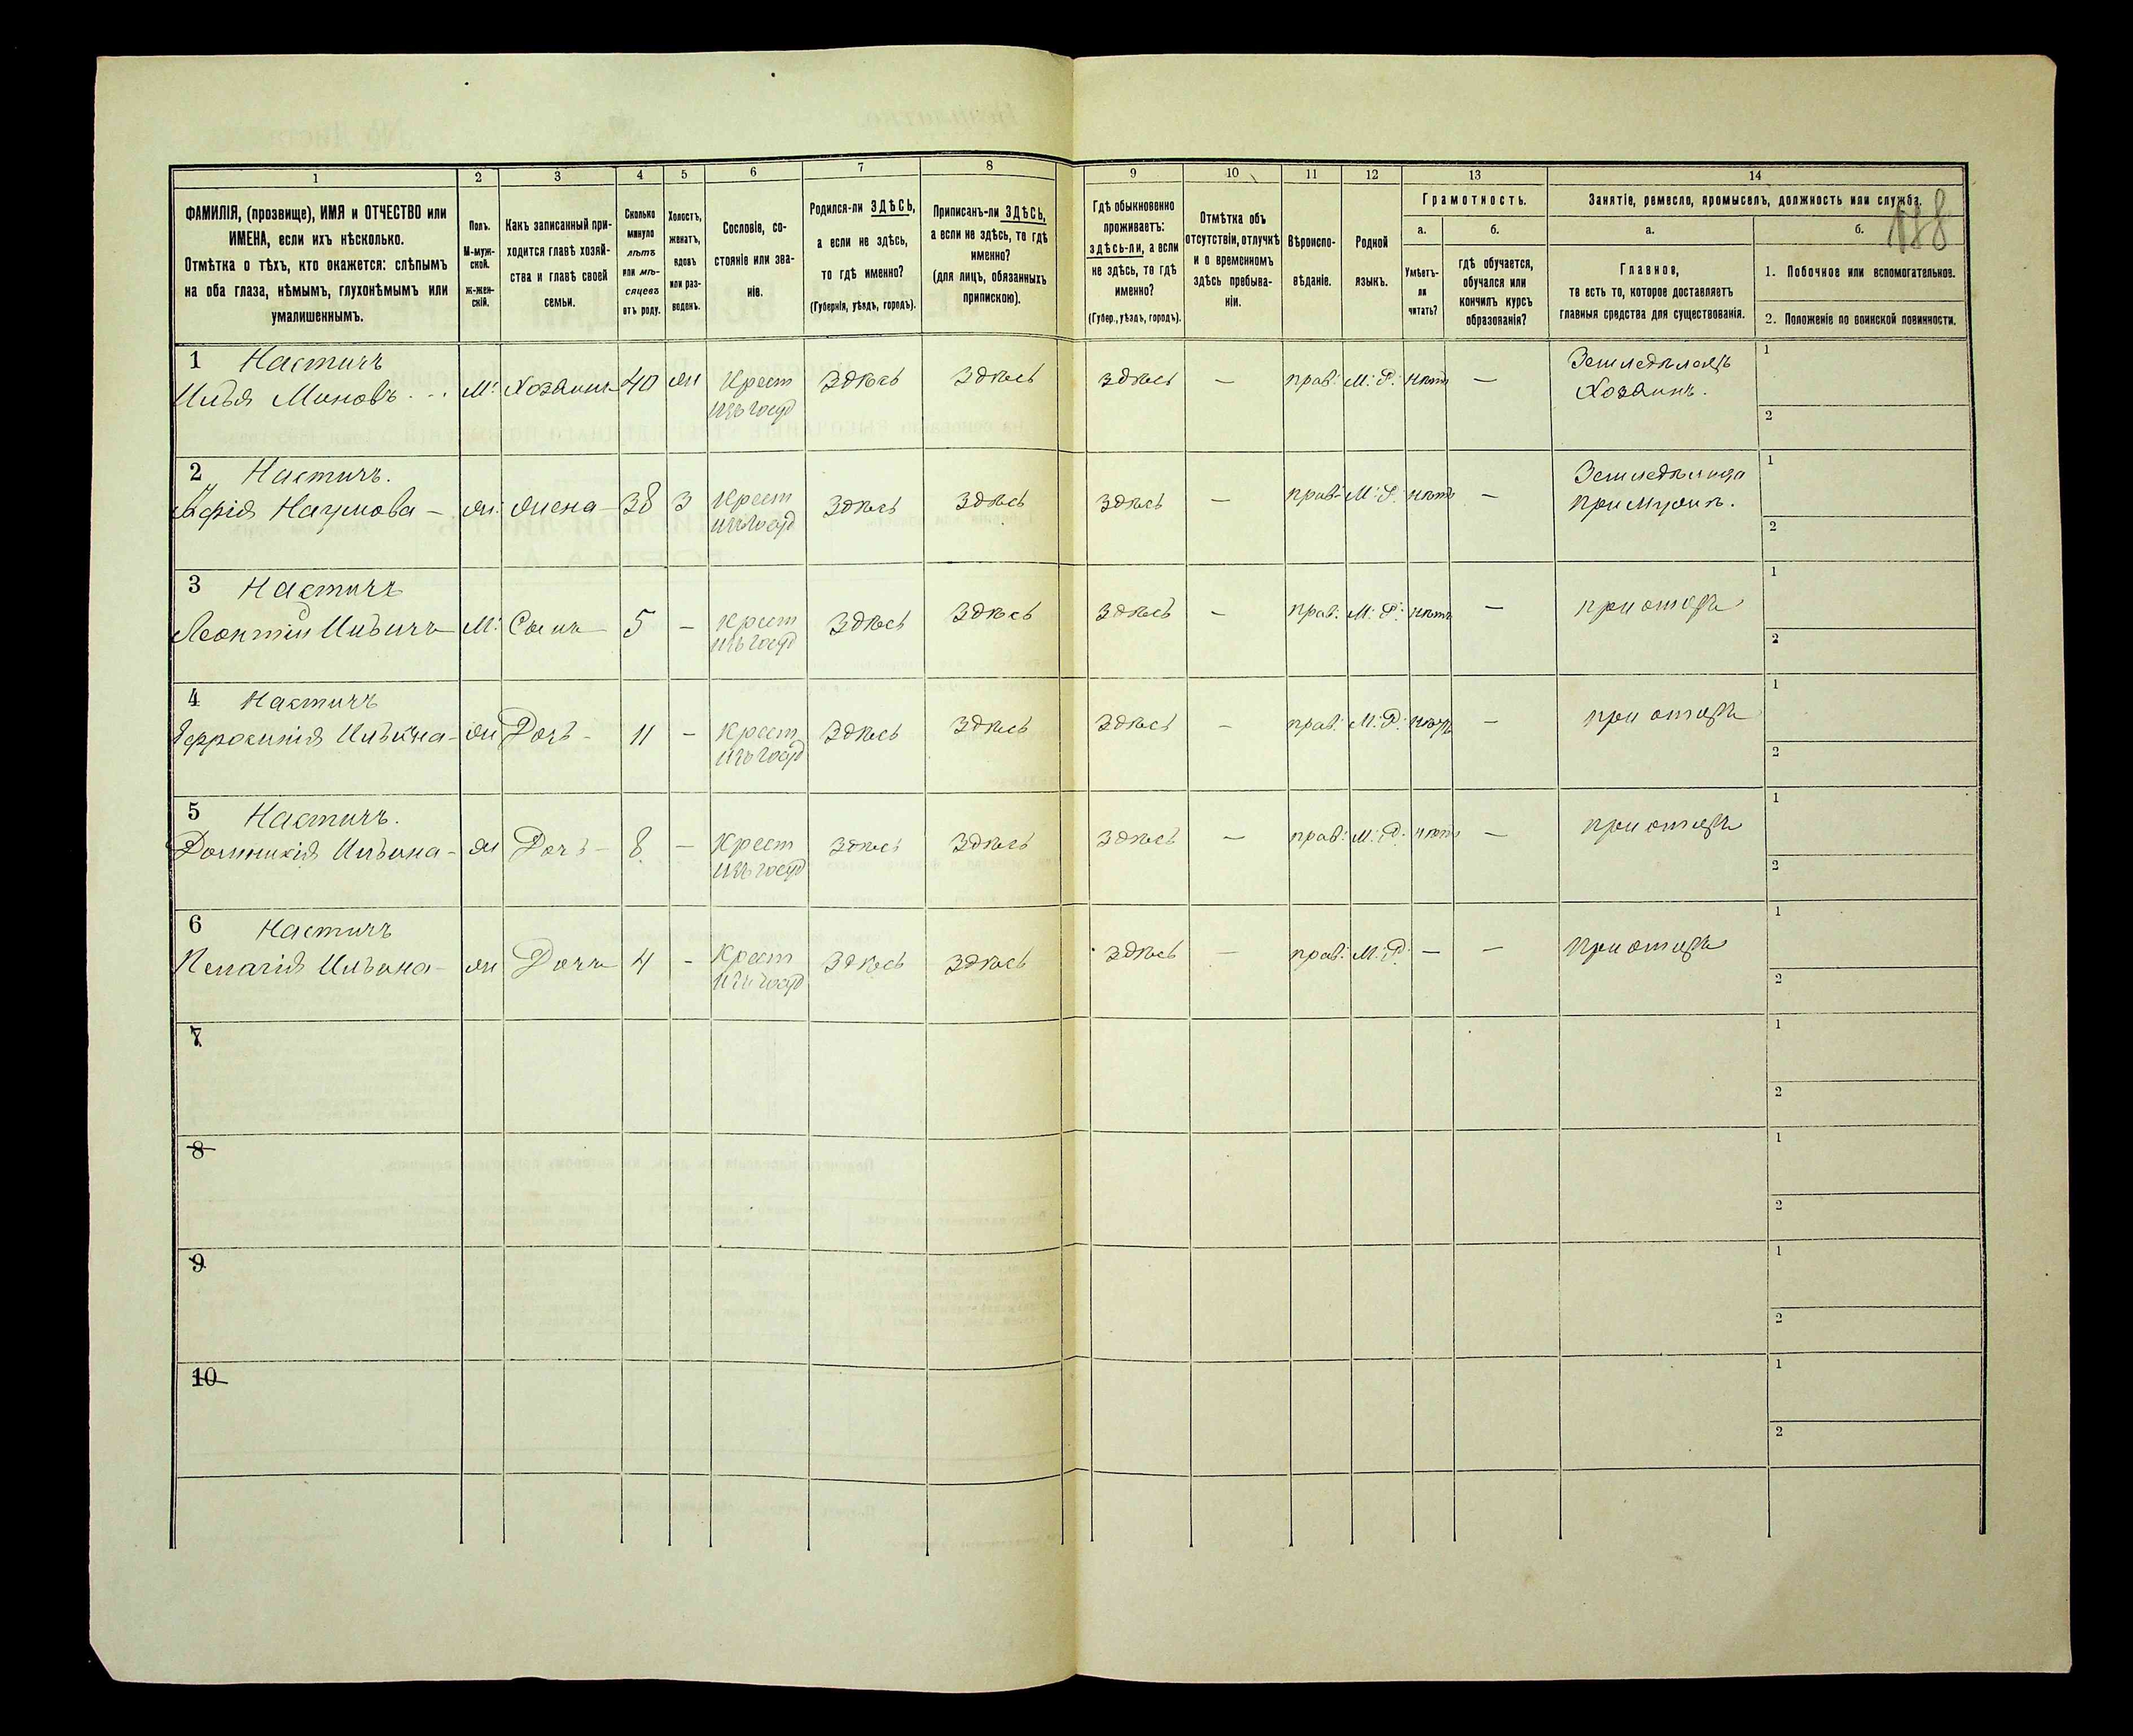 188
1 2 3 4 5 6 7 8 9 10 11 12 13 14
ФАМИЛІЯ, (прозвище), ИМЯ и ОТЧЕСТВО или
ИМЕНА, если ихъ нѣсколько.
Отмѣтка о тѣхъ, кто окажется: слѣпымъ
на оба глаза, нѣмымъ, глухонѣмымъ или
умалишеннымъ.
Полъ.
М-муж-
ской.
Ж-жен-
скій.
Какъ записанный при-
ходится главѣ хозяй-
ства и главѣ своей
семьи.
Сколько
минуло
лѣтъ
или мѣ-
сяцевъ
отъ роду.
Холостъ,
женатъ,
вдовъ
или раз-
веденъ.
Сословіе, со-
стояніе или зва-
ніе.
Родился-ли ЗДѢСЬ,
а если не здѣсь,
то гдѣ именно?
(Губернія, уѣздъ, городъ).
Приписанъ-ли ЗДѢСЬ,
а если не здѣсь, то гдѣ
именно?
(для лицъ, обязанныхъ
припискою).
Гдѣ обыкновенно
проживаетъ:
здѣсь-ли, а если
не здѣсь, то гдѣ
именно?
(Губер., уѣздъ, городъ).
Отмѣтка объ
отсутствіи, отлучкѣ
и о временномъ
здѣсь пребыва-
ніи.
Вѣроиспо-
вѣданіе.
Родной
языкъ.
Грамотность.
а.
Умѣетъ-
ли
читать?
б.
гдѣ обучается,
обучался или
кончилъ курсъ
образованія?
Занятіе, ремесло, промыселъ, должность или служба.
а.
Главное,
то есть то, которое доставляетъ
главныя средства для существованія.
б.
1. Побочное или вспомогательное.
2. Положеніе по воинской повинности.
1 Настичъ
Илья Миновъ м. Хозяинъ 40 ж Крест изъ госуд здѣсь здѣсь здѣсь — прав. М. Р. нѣтъ — Земледѣлецъ Хозяинъ. 1 2
2 Настичъ.
Наумова — ж. жена 38 З Крест изъ госуд здѣсь здѣсь здѣсь — прав. М. Р. нѣтъ — при мужѣ. 1 2
3 Настичъ
Леонтій Ильичъ М. Сынъ 5 — Крест изъ госуд здѣсь здѣсь здѣсь — прав. М. Р. нѣтъ — при отцѣ 1 2
4 Настичъ
Ильична — ж Дочь — 11 — Крест изъ госуд здѣсь здѣсь здѣсь — прав. М. Р. нѣтъ — при отцѣ 1 2
5 Настичъ.
Ильина — ж Дочь — 8 — Крест изъ госуд здѣсь здѣсь здѣсь — прав. М. Р. нѣтъ — при отцѣ 1 2
6 Настичъ
Пелагія Ильина — ж Дочь 4 — Крест изъ госуд здѣсь здѣсь здѣсь — прав. М. Р. — — при отцѣ 1 2
7 1 2
8 1 2
9 1 2
10 1 2